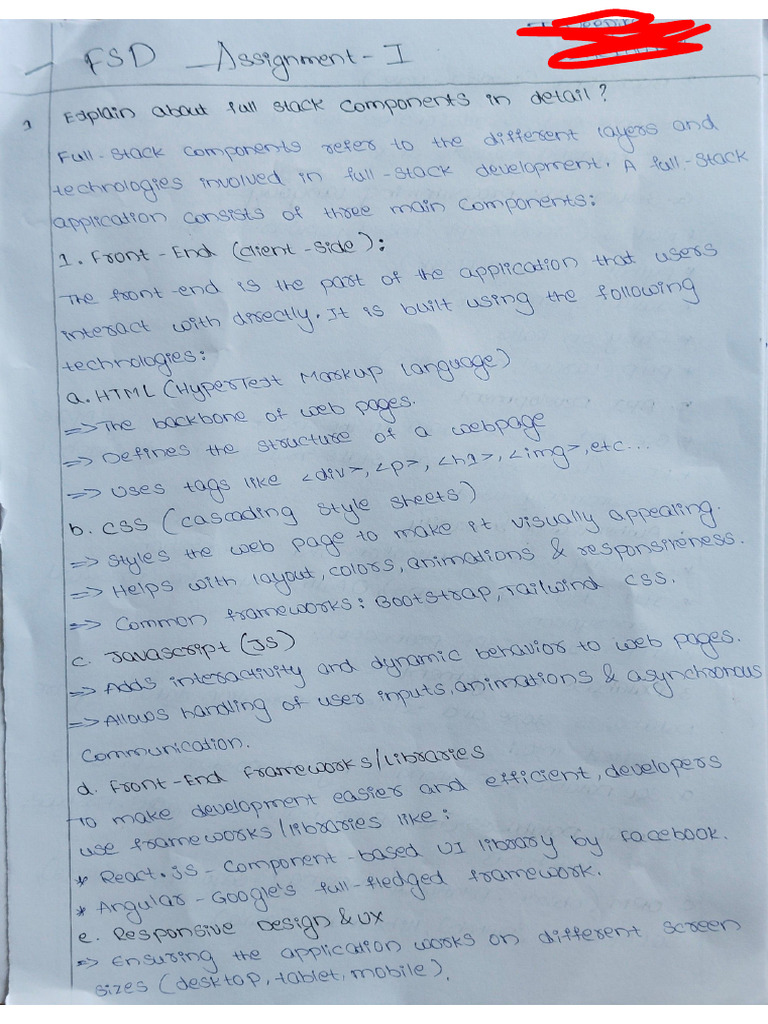 FSD - Assignment - I
1 Explain about full stack components in detail?
Full-stack components refer to the different layers and
technologies involved in full-stack development. A full-stack
application consists of three main components:
1. Front-End (client-side):
The front-end is the part of the application that users
interact with directly. It is built using the following
technologies:
a. HTML (HyperText Markup Language)
=> The backbone of web pages.
=> Defines the structure of a webpage
=> Uses tags like <div>, <p>, <h1>, <img>, etc...
b. CSS (Cascading Style Sheets)
=> Styles the web page to make it visually appealing.
=> Helps with layout, colors, animations & responsiveness.
=> Common frameworks: Bootstrap, Tailwind CSS.
c. Javascript (JS)
=> Adds interactivity and dynamic behavior to web pages.
=> Allows handling of user inputs, animations & asynchronous
communication.
d. Front-End Frameworks/Libraries
To make development easier and efficient, developers
use frameworks/libraries like:
* React.js - Component-based UI library by Facebook.
* Angular - Google's full-fledged framework.
e. Responsive Design & UX
=> Ensuring the application works on different screen
sizes (desktop, tablet, mobile).